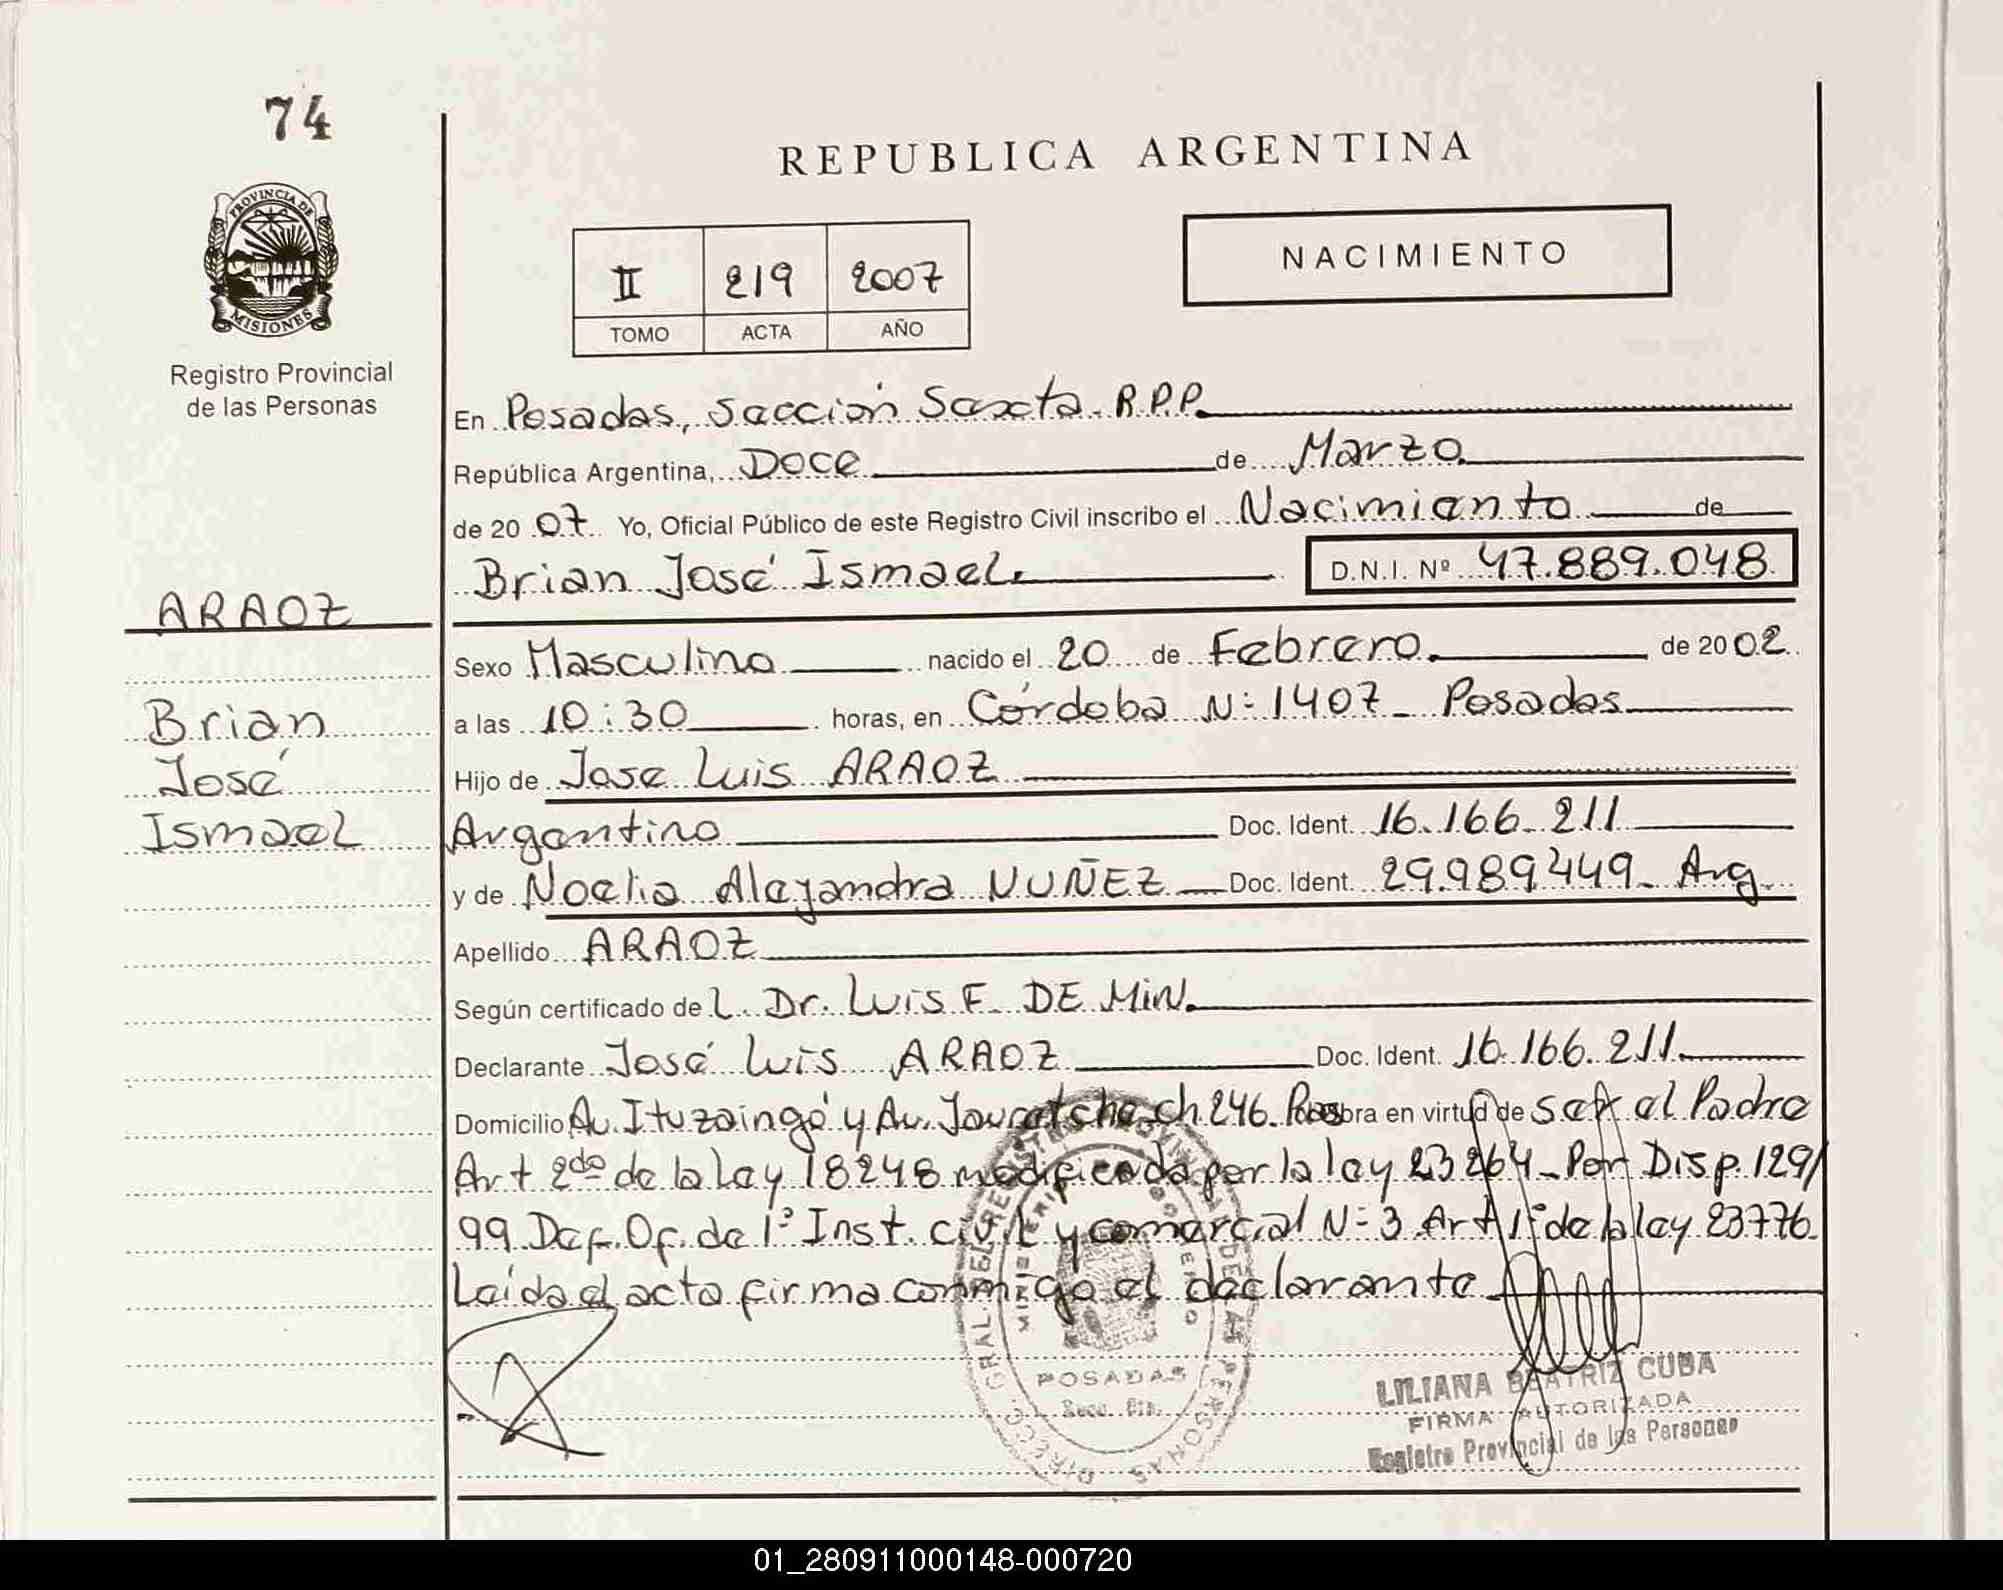 74
REPUBLICA ARGENTINA
PROVINCIA DE
MISIONES
Registro Provincial
de las Personas
NACIMIENTO
II 219 2007
TOMO ACTA AÑO
En Posadas, Sección Sexta R.P.P.
República Argentina, DOCE de Marzo
de 2007 Yo, Oficial Público de este Registro Civil inscribo el Nacimiento de
Brian José Ismael D.N.I. Nº 47.889.048
ARAOZ
Sexo Masculino nacido el 20 de Febrero de 2002
Brian
a las 10:30 horas, en Córdoba Nº 1407 - Posadas
José
Hijo de Jose Luis ARAOZ
Ismael
Argentino Doc. Ident. 16.166.211
y de Noelia Alejandra NUÑEZ Doc. Ident. 29.989.449 - Arg.
Apellido ARAOZ
Según certificado de L. Dr. Luis F. DE MiN.
Declarante José Luis ARAOZ Doc. Ident. 16.166.211
Domicilio Av. Ituzaingó y Av. Ch. 246. Pos obra en virtud de ser el Padre
Art 2do de la Ley 18248 modificada por la ley 23264 - Por Disp. 129/
99 Def. Of. de 1º Inst. civil y comercial Nº 3 Art 1º de la ley 23776.
Leída el acta firma conmigo el declarante
DIRECC. GRAL. DEL REGISTRO PROVINCIAL DE LAS PERSONAS
MINISTERIO DE GOBIERNO
POSADAS
Secc. 6ta.
LILIANA BEATRIZ CUBA
FIRMA AUTORIZADA
Registro Provincial de las Personas
01_280911000148-000720